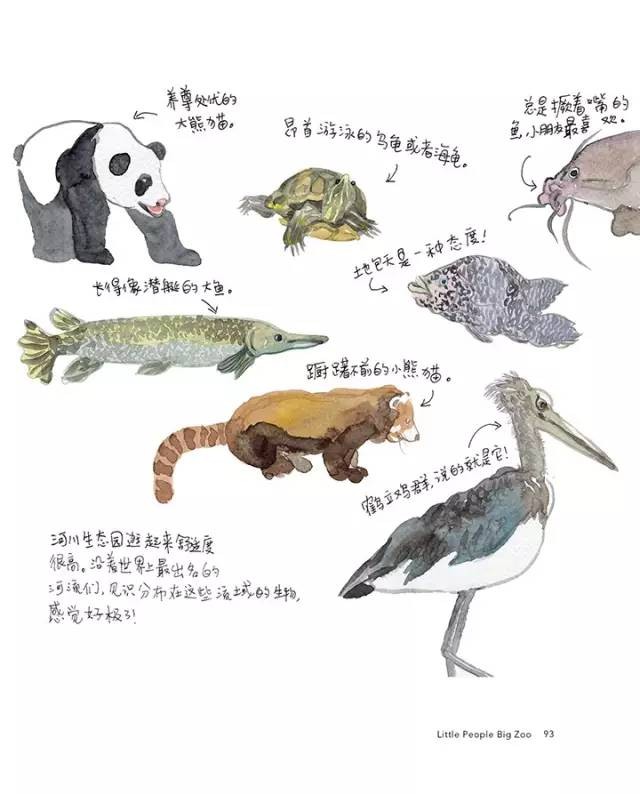 养尊处优的
大熊猫。
昂首游泳的乌龟或者海龟。
总是撅着嘴的
鱼，小朋友最喜欢。
地包天是一种态度！
长得像潜艇的大鱼。
踟蹰不前的小熊猫。
鹤立鸡群，说的就是它！
河川生态园逛起来舒适度
很高。沿着世界上最出名的
河流们，见识分布在这些流域的生物，
感觉好极了！
Little People Big Zoo 93